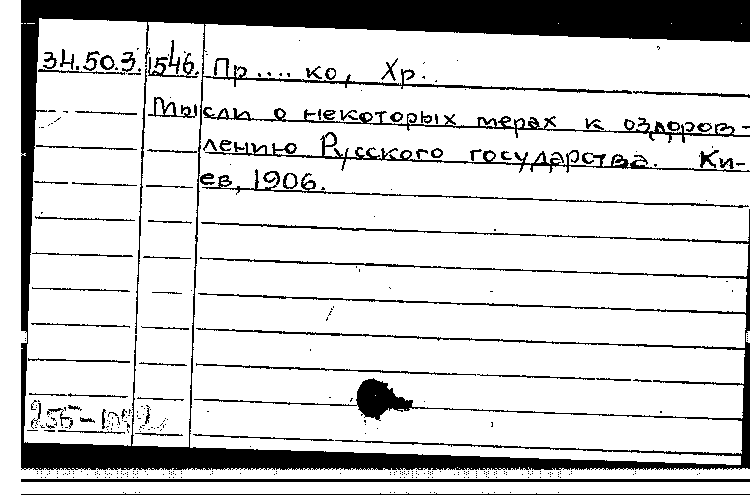 34.50.3. 1546. Пр.... ко, Хр.
Мысли о некоторых мерах к оздоров-
лению Русского государства. Ки-
ев, 1906.